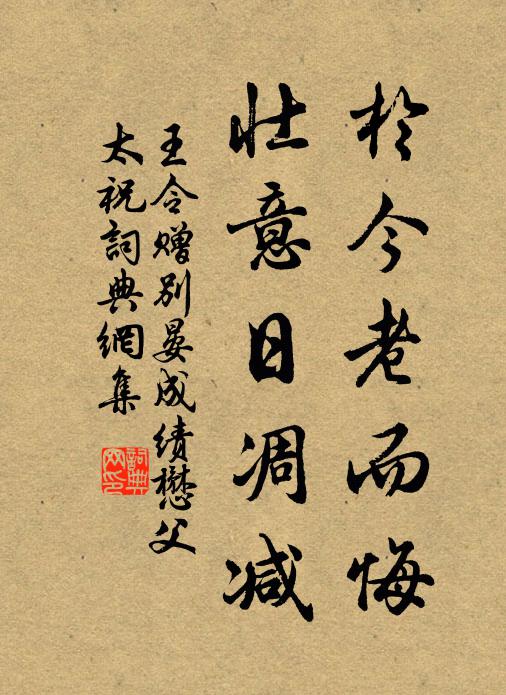 於今老而悔
壮意日凋减
王令赠别晏成绩懋父
太祝詞典網集
詞典网印